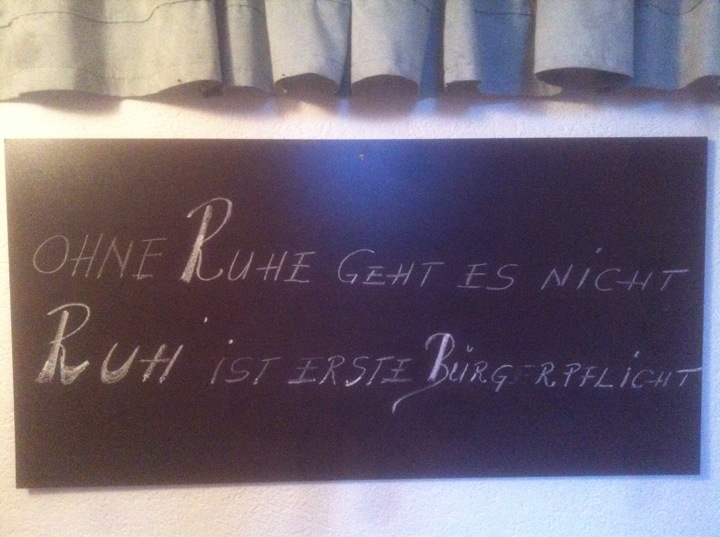 OHNE RUHE GEHT ES NiCHT
RUH' iST ERSTE BÜRGERPFLiCHT